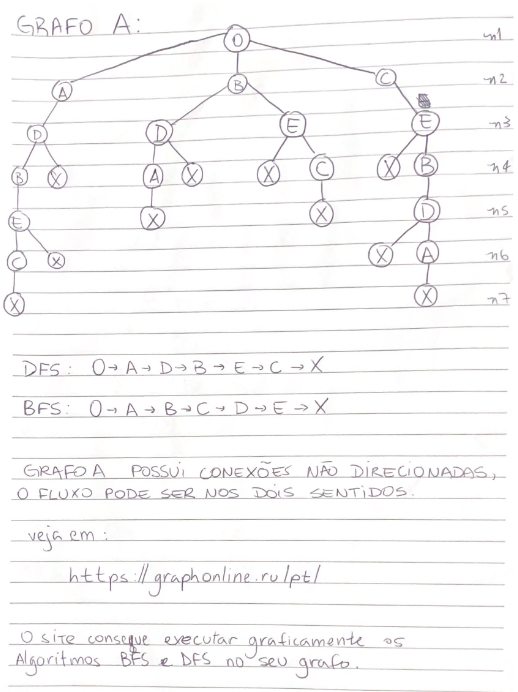 GRAFO A:
O n1
A B C n2
D D E E n3
B X A X X C X B n4
E X X D n5
C X X A n6
X X n7
DFS: O → A → D → B → E → C → X
BFS: O → A → B → C → D → E → X
GRAFO A POSSUI CONEXÕES NÃO DIRECIONADAS,
O FLUXO PODE SER NOS DOIS SENTIDOS.
veja em:
https://graphonline.ru/pt/
O site consegue executar graficamente os
Algoritmos BFS e DFS no seu grafo.